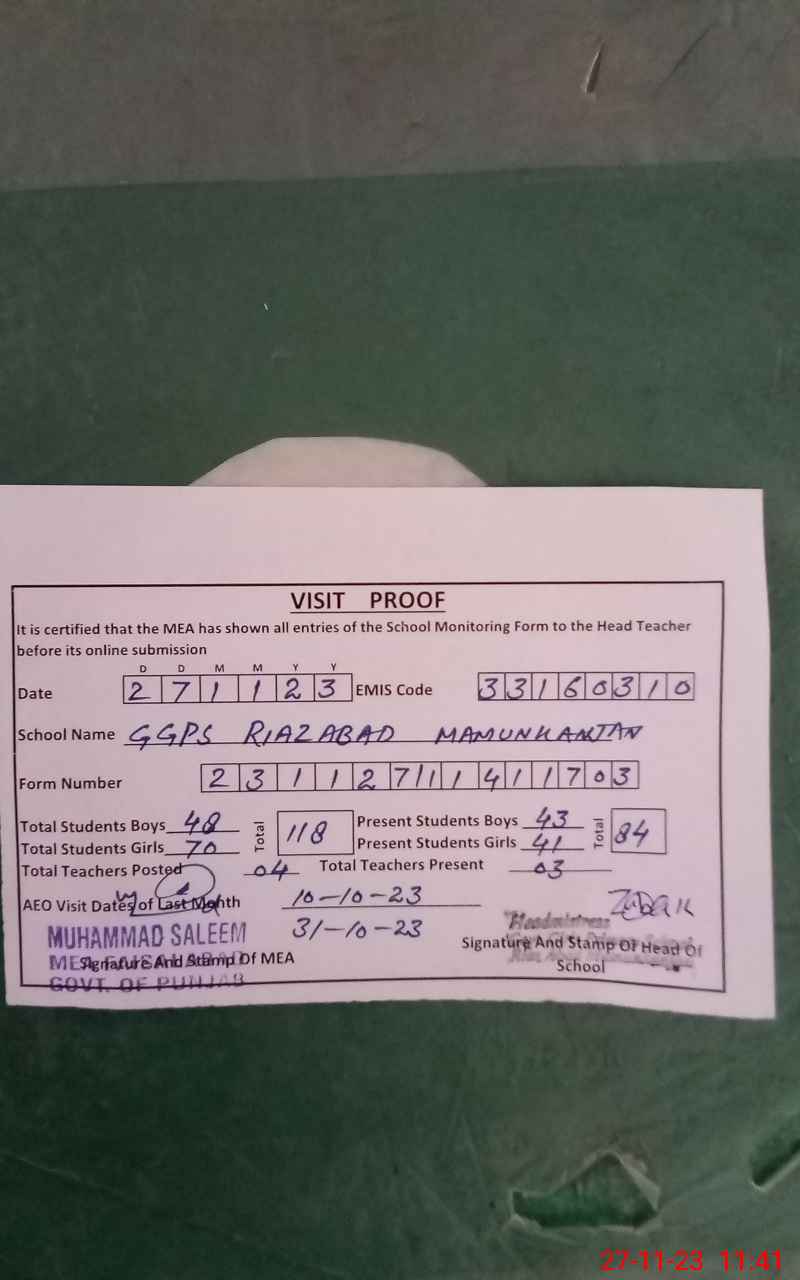 VISIT PROOF
It is certified that the MEA has shown all entries of the School Monitoring Form to the Head Teacher
before its online submission
D D M M Y Y
Date 2 7 1 1 2 3 EMIS Code 3 3 1 6 0 3 1 0
School Name GGPS RIAZABAD MAMUNKANJAN
Form Number 2 3 1 1 2 7 1 1 4 1 1 7 0 3
Total Students Boys 48 Total 118 Present Students Boys 43 Total 84
Total Students Girls 70 Present Students Girls 41
Total Teachers Posted 04 Total Teachers Present 03
AEO Visit Dates of Last Month 10-10-23
31-10-23
MUHAMMAD SALEEM
Signature And Stamp Of MEA
GOVT. OF PUNJAB
Headmistress
Signature And Stamp Of Head Of
School
27-11-23 11:41